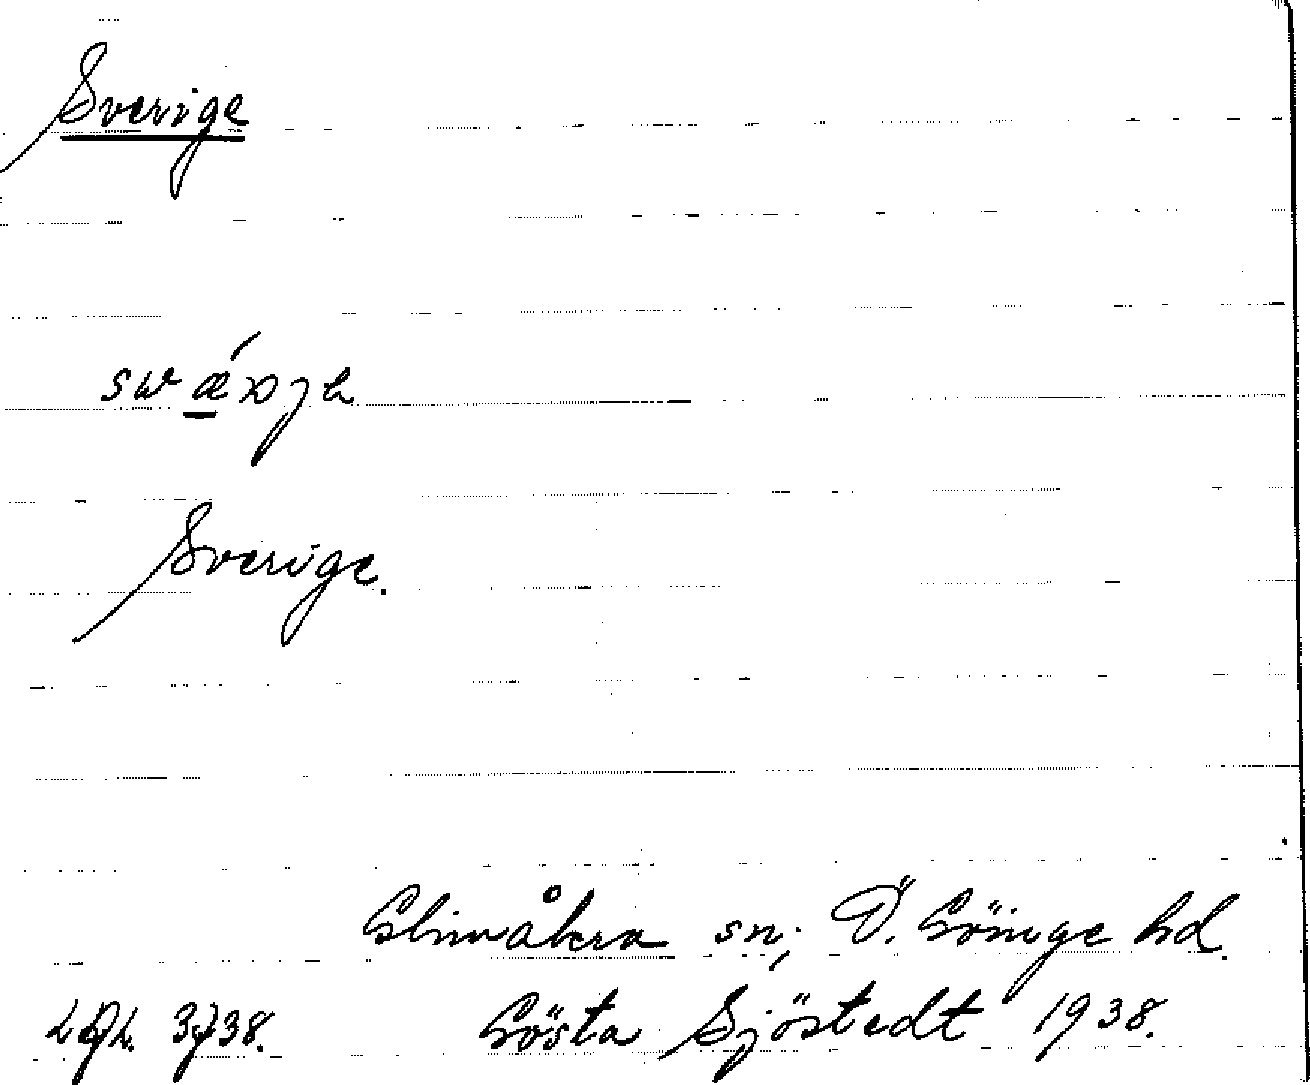 Sverige
swǽrjə
Sverige.
Glimåkra sn; Ö. Göinge hd.
Gösta Sjöstedt 1938.